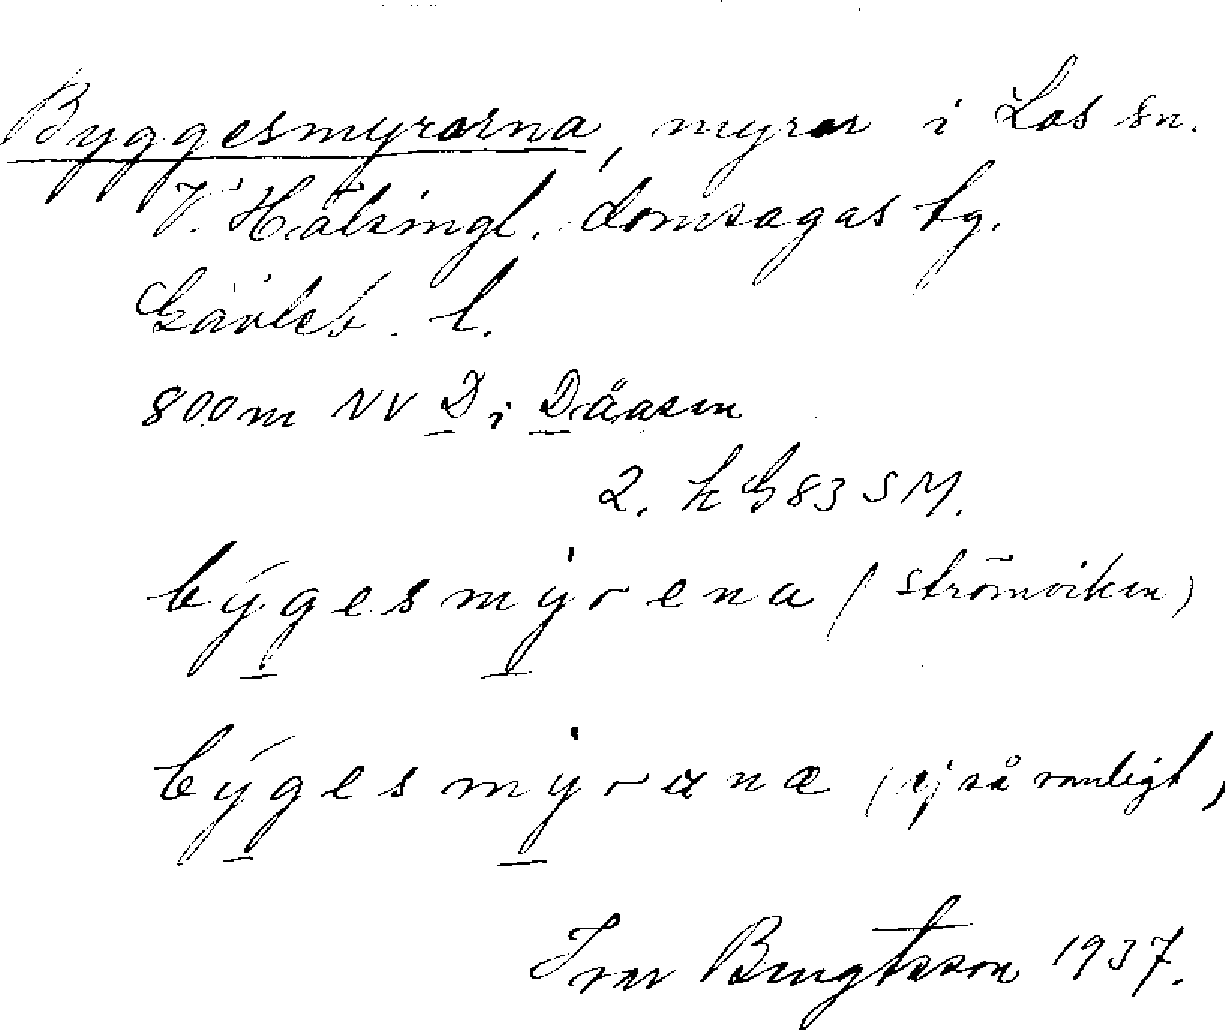 Byggesmyrarna, myrar i Los sn.
V. Hälsingl. domsagas tg.
Gävleb. l.
800 m NV D i Dåasen
2. k G 83 SM.
býgesmy̍rena (Strömviken)
býgesmy̍rana (ej så vanligt)
Ivar Bengtsson 1937.